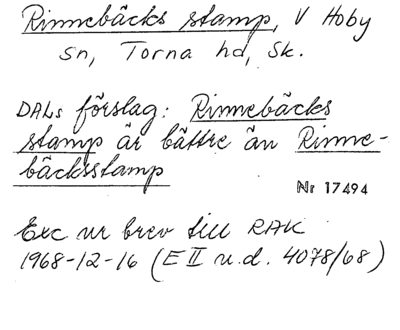 Rinnebäcks stamp, V Hoby
sn, Torna hd, Sk.
DALs förslag: Rinnebäcks
stamp är bättre än Rinne-
bäcksstamp
Nr 17494
Exc ur brev till RAK
1968-12-16 (E II u.d. 4078/68)